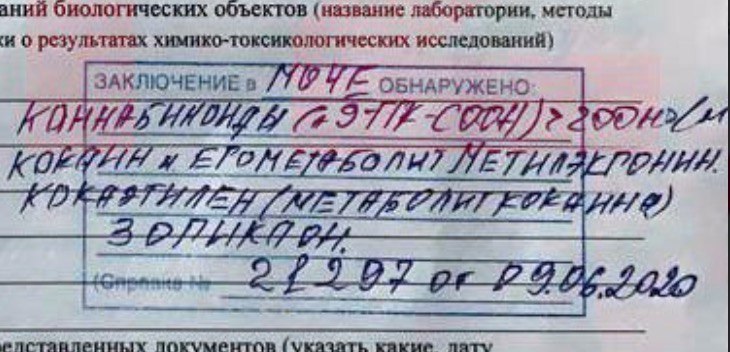 аний биологических объектов (название лаборатории, методы
ки о результатах химико-токсикологических исследований)
ЗАКЛЮЧЕНИЕ в МОЧЕ ОБНАРУЖЕНО:
КАННАБИНОИДЫ (Δ9-ТГК-COOH) > 200нг/м
КОКАИН и ЕГО МЕТАБОЛИТ МЕТИЛЭКГОНИН.
КОКАЭТИЛЕН (МЕТАБОЛИТ КОКАИНА)
ЗОПИКЛОН.
(Справка № 21297 от 09.06.2020
редставленных документов (указать какие, дату